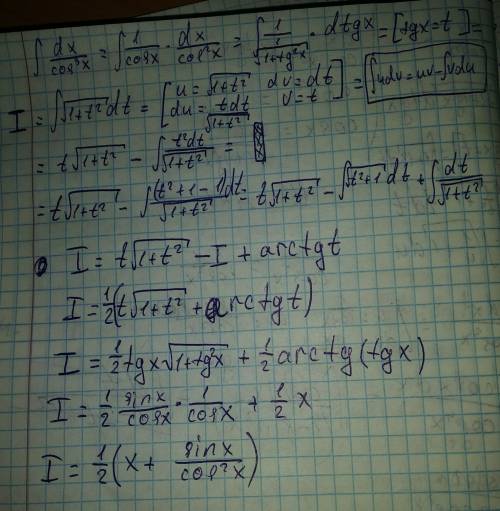 ∫ dx/cos³x = ∫ 1/cosx · dx/cos²x = ∫ 1/(1/√(1+tg²x)) · dtgx = [tgx=t] =
I = ∫√(1+t²) dt = [u = √(1+t²) dv = dt du = tdt/√(1+t²) v = t] = ∫udv = uv - ∫vdu
= t√(1+t²) - ∫ t²dt/√(1+t²) =
= t√(1+t²) - ∫ (t²+1-1)dt/√(1+t²) = t√(1+t²) - ∫√(t²+1) dt + ∫ dt/√(1+t²)
I = t√(1+t²) - I + arctgt
I = 1/2(t√(1+t²) + arctgt)
I = 1/2 tgx√(1+tg²x) + 1/2 arctg(tgx)
I = 1/2 sinx/cosx · 1/cosx + 1/2 x
I = 1/2(x + sinx/cos²x)